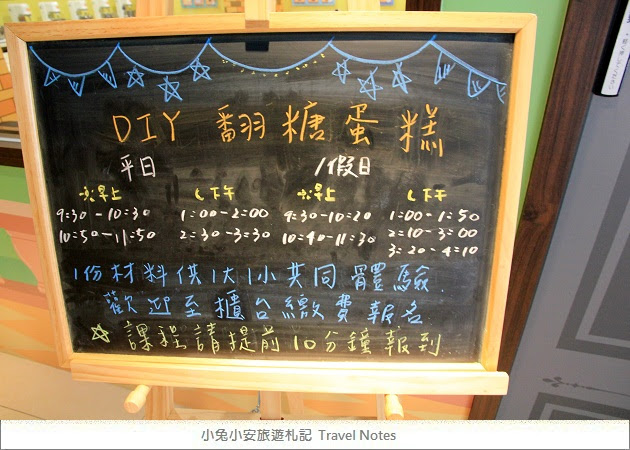 DIY 翻糖蛋糕
平日 / 假日
早上 下午 早上 下午
9:30-10:30 1:00-2:00 9:30-10:20 1:00-1:50
10:50-11:50 2:30-3:30 10:40-11:30 2:10-3:00
3:20-4:10
1份材料供1大1小共同體驗.
歡迎至櫃台繳費報名
☆課程請提前10分鐘報到.
小兔小安旅遊札記 Travel Notes